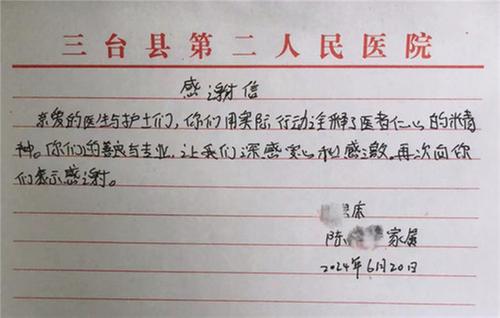 三台县第二人民医院
感谢信
亲爱的医生与护士们，你们用实际行动诠释了医者仁心的精
神。你们的善良与专业，让我们深感安心和感激。再次向你
们表示感谢。
床
陈 家属
2024年6月20日